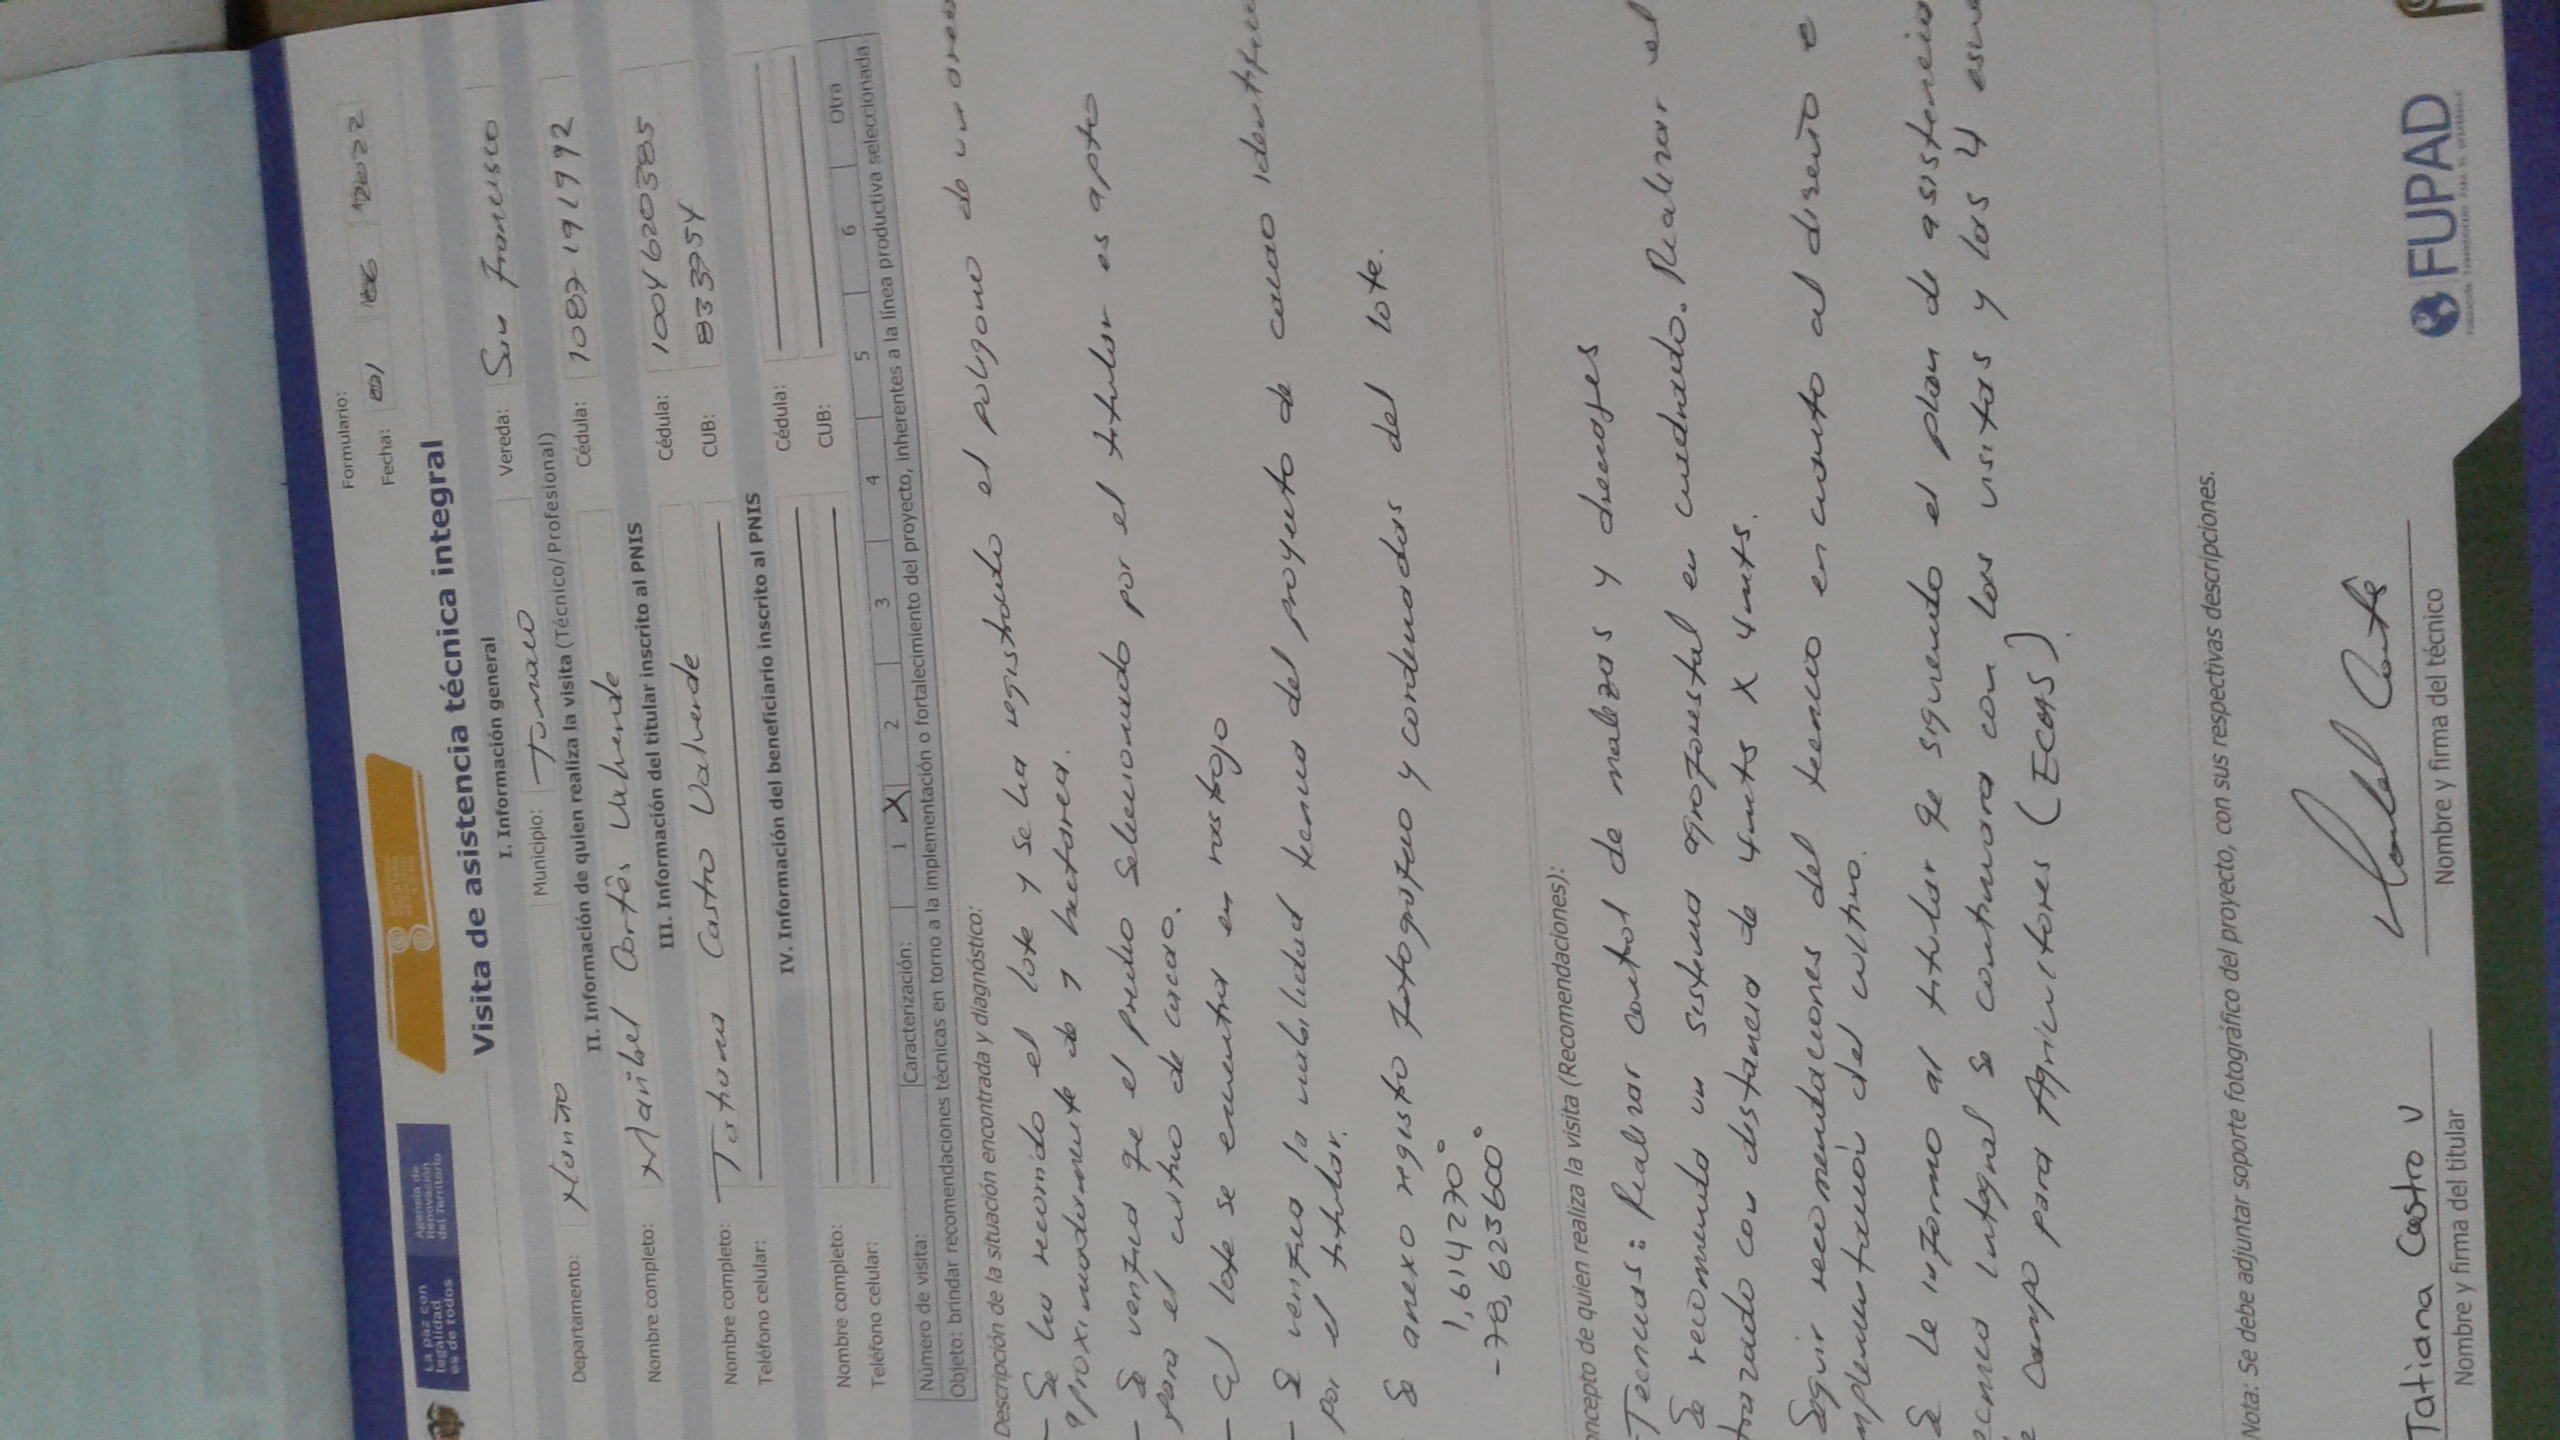 La paz con
legalidad
es de todos
Agencia de
Renovación
del Territorio
Formulario:
Fecha: 01 2022
Visita de asistencia técnica integral
I. Información general
Departamento: Nariño Municipio: Tumaco Vereda: San Francisco
II. Información de quien realiza la visita (Técnico/Profesional)
Nombre completo: Maribel Cortês Valverde Cédula: 1087191992
III. Información del titular inscrito al PNIS
Cédula: 1004620385
Nombre completo: Tatiana Castro Valverde CUB: 833954
Teléfono celular:
IV. Información del beneficiario inscrito al PNIS
Cédula:
Nombre completo: CUB:
Teléfono celular:
Número de visita: Caracterización: 1 X 2 3 4 5 6 Otra
Objeto: brindar recomendaciones técnicas en torno a la implementación o fortalecimiento del proyecto, inherentes a la línea productiva seleccionada
Descripción de la situación encontrada y diagnóstico:
- Se ha recorrido el lote y se ha registrado el poligono de un area
aproximadamente de 1 hectarea.
- Se verifica qe el predio seleccionado por el titular es apto
para el cultivo de cacao.
- El lote se encuentra en rastrojo
- Se verifica la viabilidad tecnica del proyecto de cacao identifica
por el titular.
Se anexo registro fotografico y cordenadas del lote.
1,614270°
-78,623600°
oncepto de quien realiza la visita (Recomendaciones):
Tecnicas: Realizar control de malezas y drenajes
Se recomienda un sistema agroforestal en cuadrado. Realizar el
trazado con distancia de 4mts X 4mts.
Seguir recomendaciones del tecnico en cuanto al diseño e
mplementación del cultivo.
Se le informo al titular qe siguiendo el plan de asistencia
ecnica integral se continuara con las visitas y las 4 escue
e campo para Agricultores (ECAS).
Nota: Se debe adjuntar soporte fotográfico del proyecto, con sus respectivas descripciones.
Tatiana Castro V
Nombre y firma del titular
Maribel Cortês
Nombre y firma del técnico
FUPAD